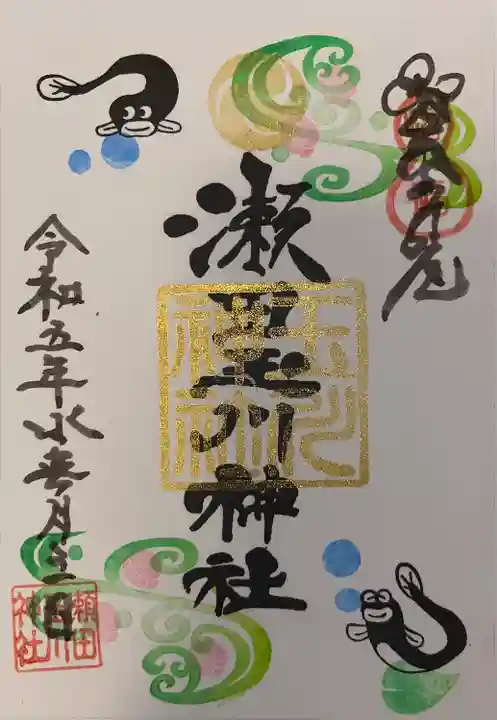 瀬田玉川神社
玉川
神社
令和五年水無月
瀬田
玉川
神社